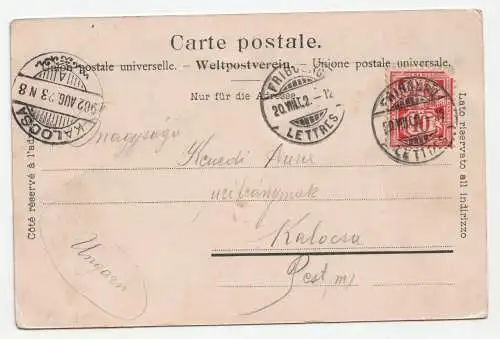 Carte postale.
Union postale universelle. — Weltpostverein. — Unione postale universale.
Nur für die Adresse.
Côté réservé à l'adresse
Lato riservato all'indirizzo
KALOCSA
902 AUG. 23 N 8
FRIBOURG
20.VIII.02.-12
LETTRES
FRIBOURG
20.VIII.02
LETTRES
10
Nagyságú
Kenedi
Kalocsa
Pest m.)
Ungarn